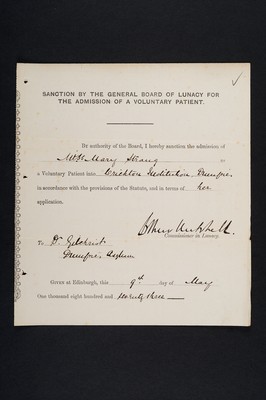 SANCTION BY THE GENERAL BOARD OF LUNACY FOR
THE ADMISSION OF A VOLUNTARY PATIENT.
By authority of the Board, I hereby sanction the admission of
Mary Strang as
a Voluntary Patient into Crichton Institution, Dumfries
in accordance with the provisions of the Statute, and in terms of her
application.
Commissioner in Lunacy.
To Dr. Gilchrist
Dumfries Asylum
Given at Edinburgh, this 9th day of May
One thousand eight hundred and seventy three